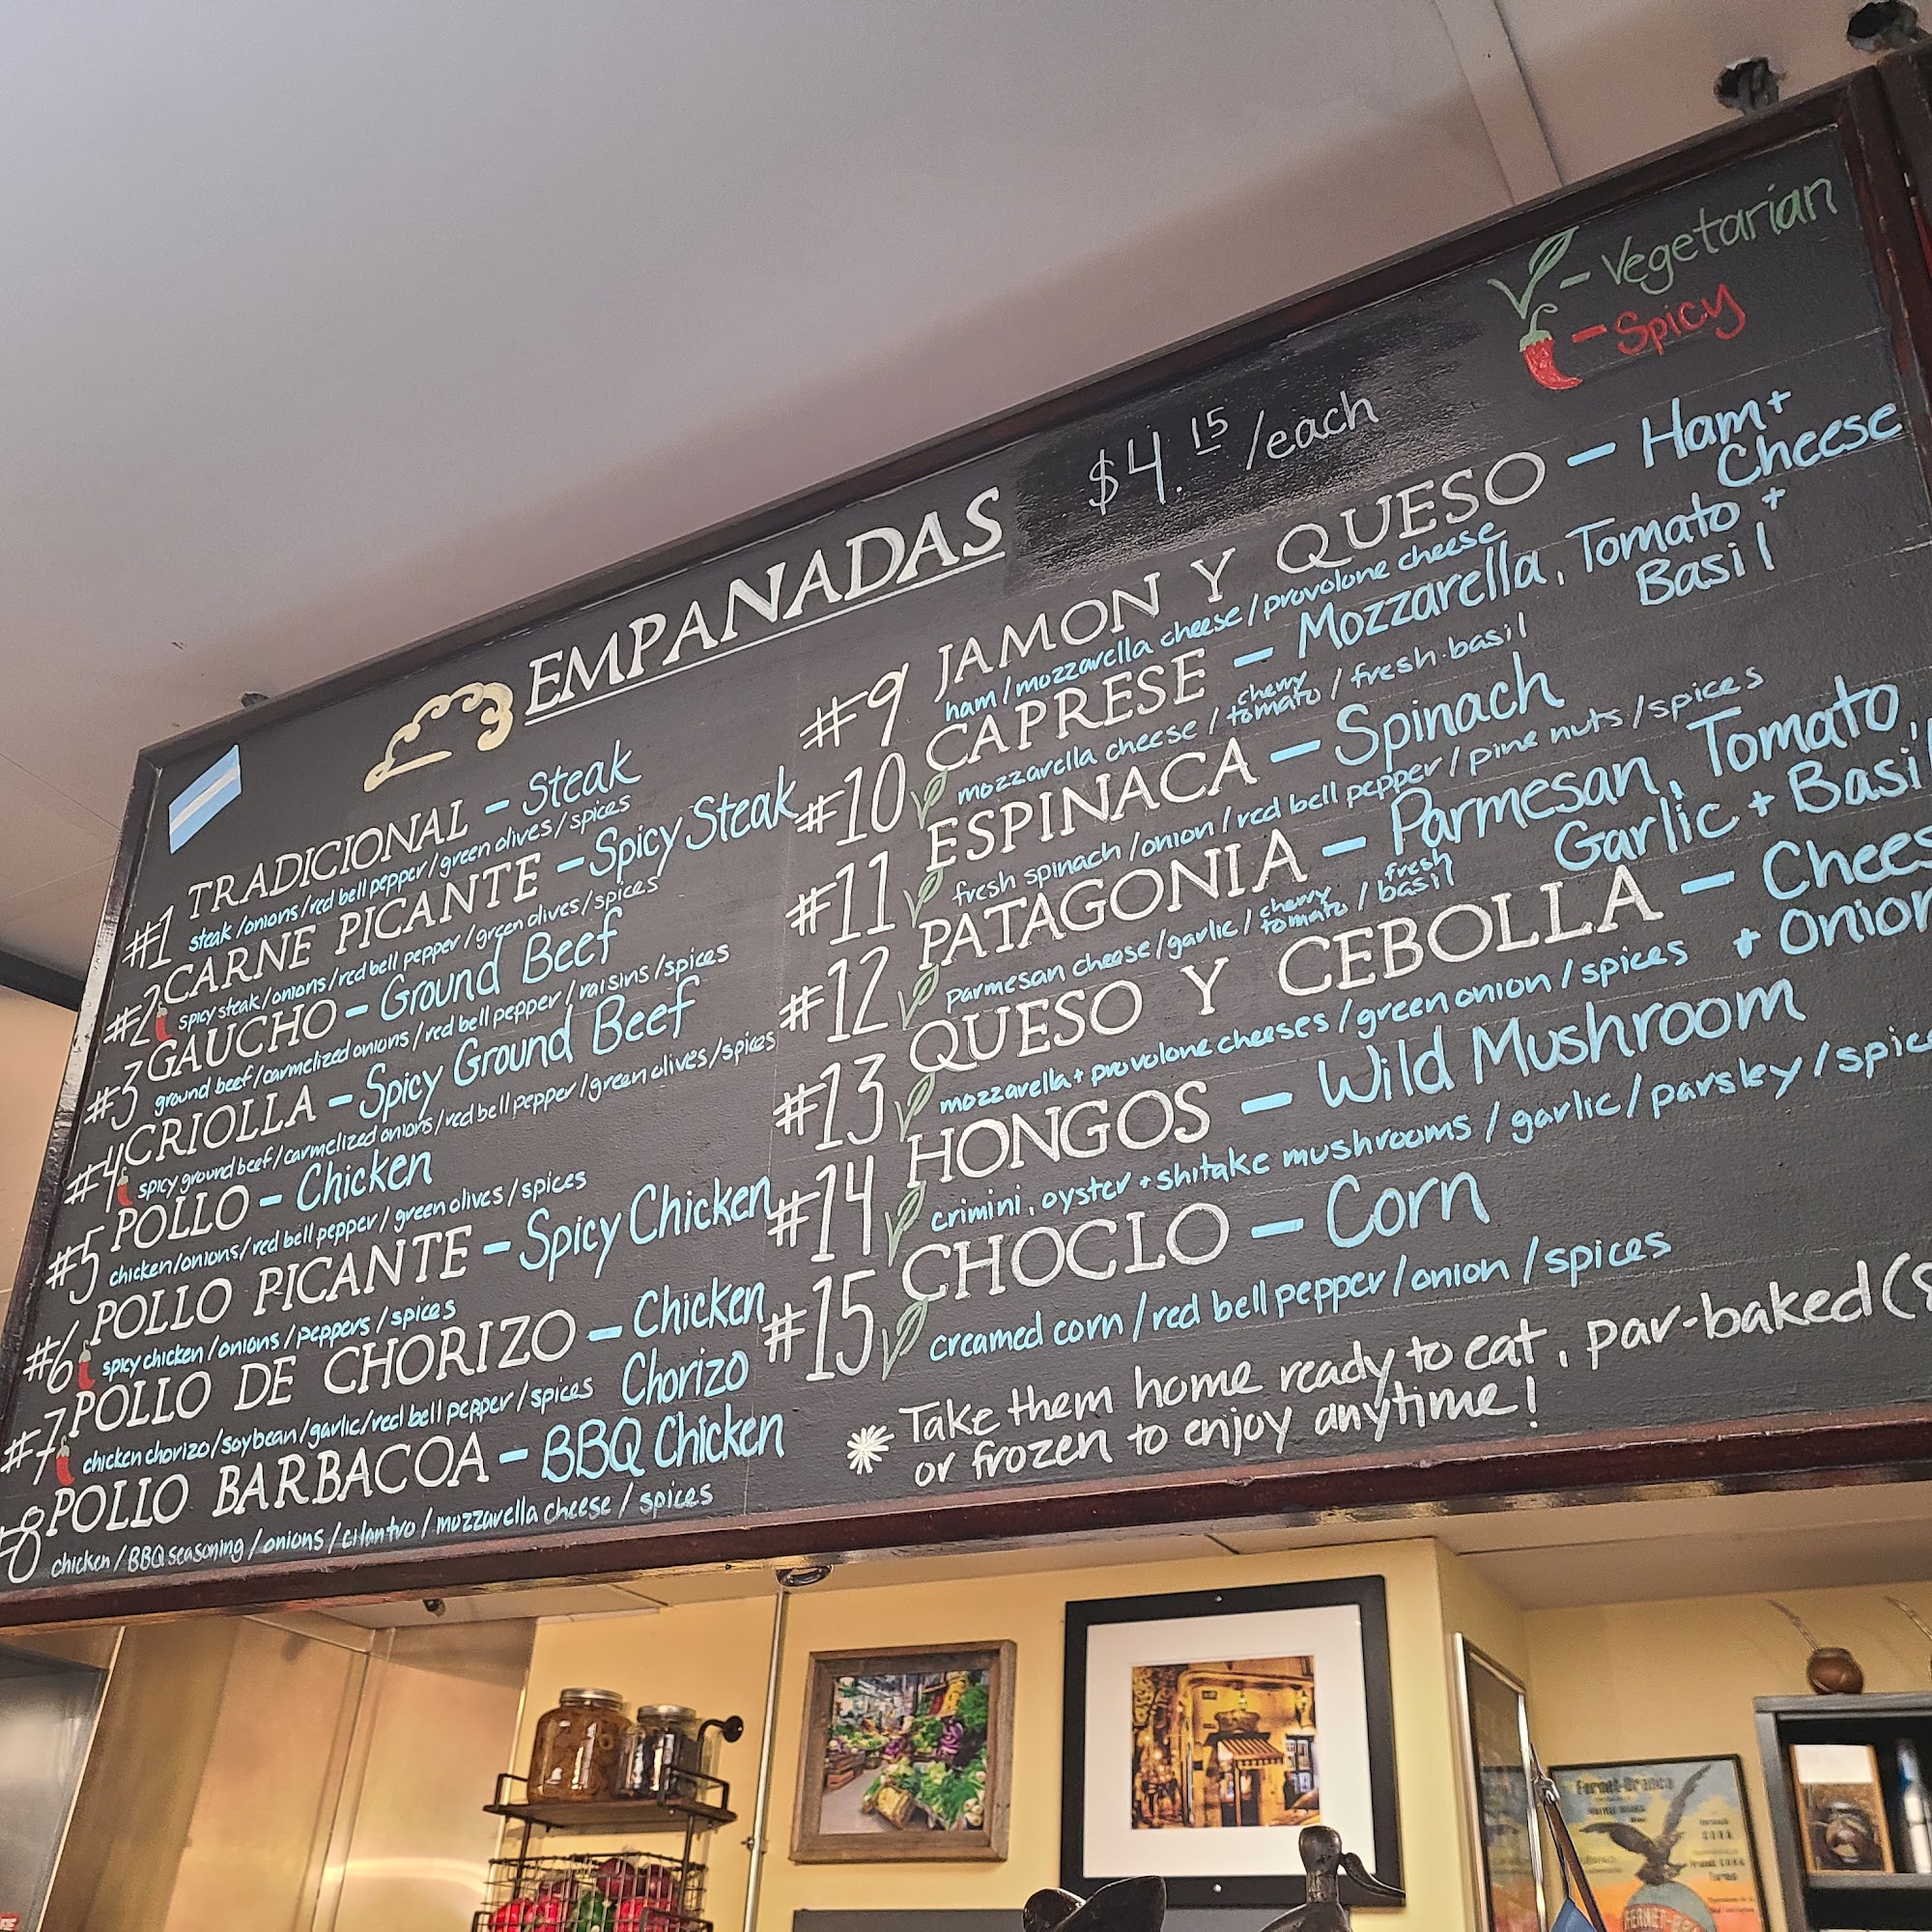 - Vegetarian
- Spicy
EMPANADAS $4.15/each
#1 TRADICIONAL - Steak
steak/onions/red bell pepper/green olives/spices
#2 CARNE PICANTE - Spicy Steak
spicy steak/onions/red bell pepper/green olives/spices
#3 GAUCHO - Ground Beef
ground beef/carmelized onions/red bell pepper/raisins/spices
#4 CRIOLLA - Spicy Ground Beef
spicy ground beef/carmelized onions/red bell pepper/green olives/spices
#5 POLLO - Chicken
chicken/onions/red bell pepper/green olives/spices
#6 POLLO PICANTE - Spicy Chicken
spicy chicken/onions/peppers/spices
#7 POLLO DE CHORIZO - Chicken
Chorizo
chicken chorizo/soybean/garlic/red bell pepper/spices
#8 POLLO BARBACOA - BBQ Chicken
chicken/BBQ seasoning/onions/cilantro/mozzarella cheese/spices
#9 JAMON Y QUESO - Ham+
Cheese
ham/mozzarella cheese/provolone cheese
#10 CAPRESE - Mozzarella, Tomato +
Basil
mozzarella cheese/cherry tomato/fresh basil
#11 ESPINACA - Spinach
fresh spinach/onion/red bell pepper/pine nuts/spices
#12 PATAGONIA - Parmesan, Tomato,
Garlic + Basil
parmesan cheese/garlic/cherry tomato/fresh basil
#13 QUESO Y CEBOLLA - Chees
+ Onion
mozzarella + provolone cheeses/green onion/spices
#14 HONGOS - Wild Mushroom
crimini, oyster + shitake mushrooms/garlic/parsley/spice
#15 CHOCLO - Corn
creamed corn/red bell pepper/onion/spices
* Take them home ready to eat, par-baked (
or frozen to enjoy anytime!
Fernet-Branca
FERNET-